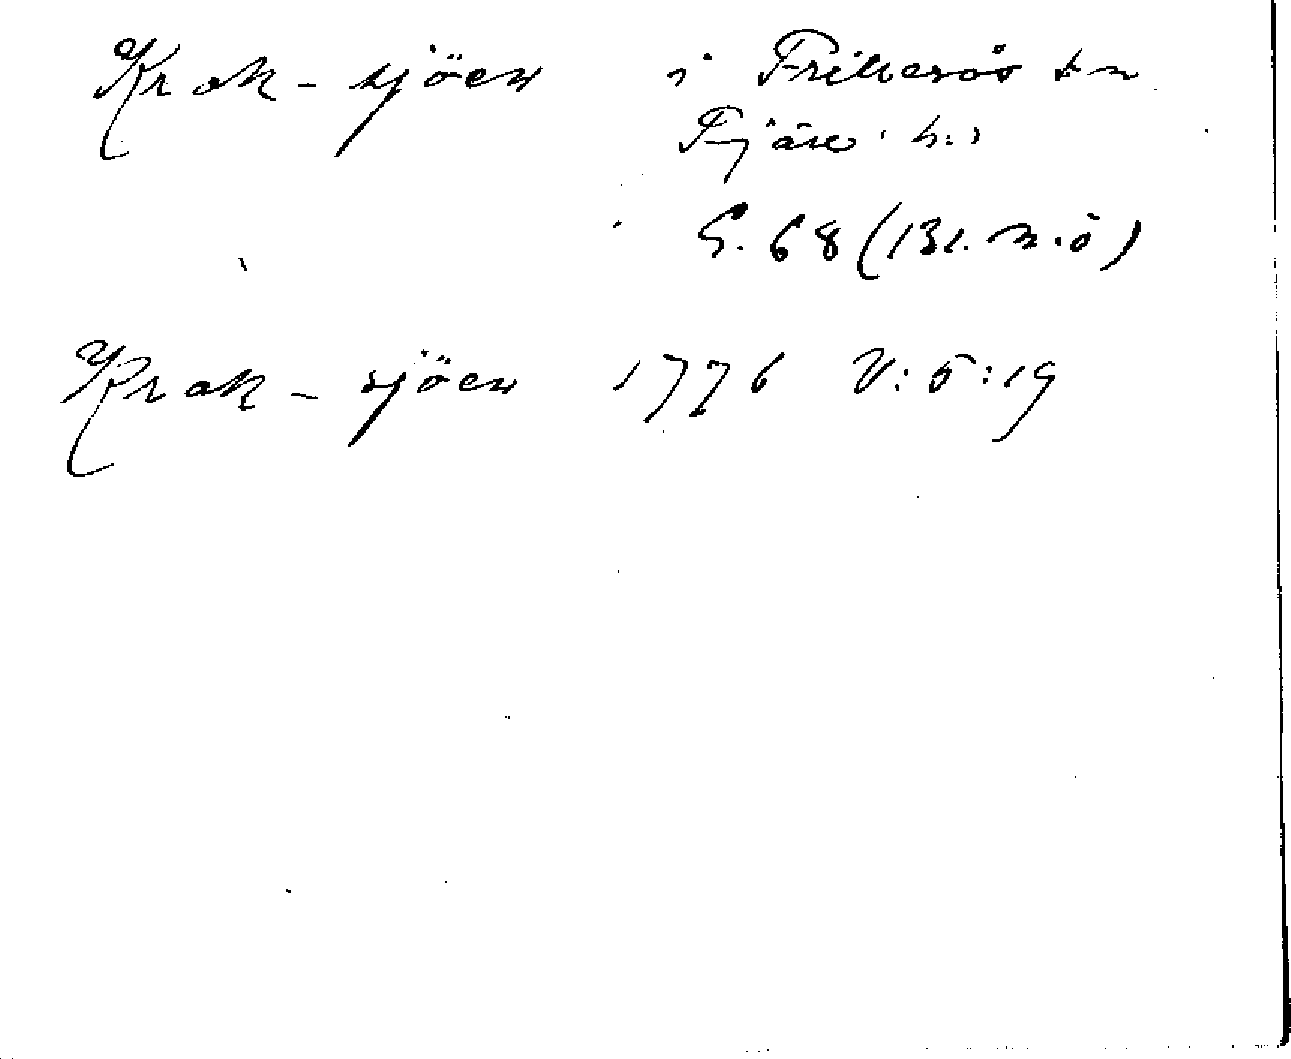 Krok-sjöen i Frillesås sn
Fjäre h:d
G. 68 (131. n.ö)
Krok-sjöen 1776 V:5:19